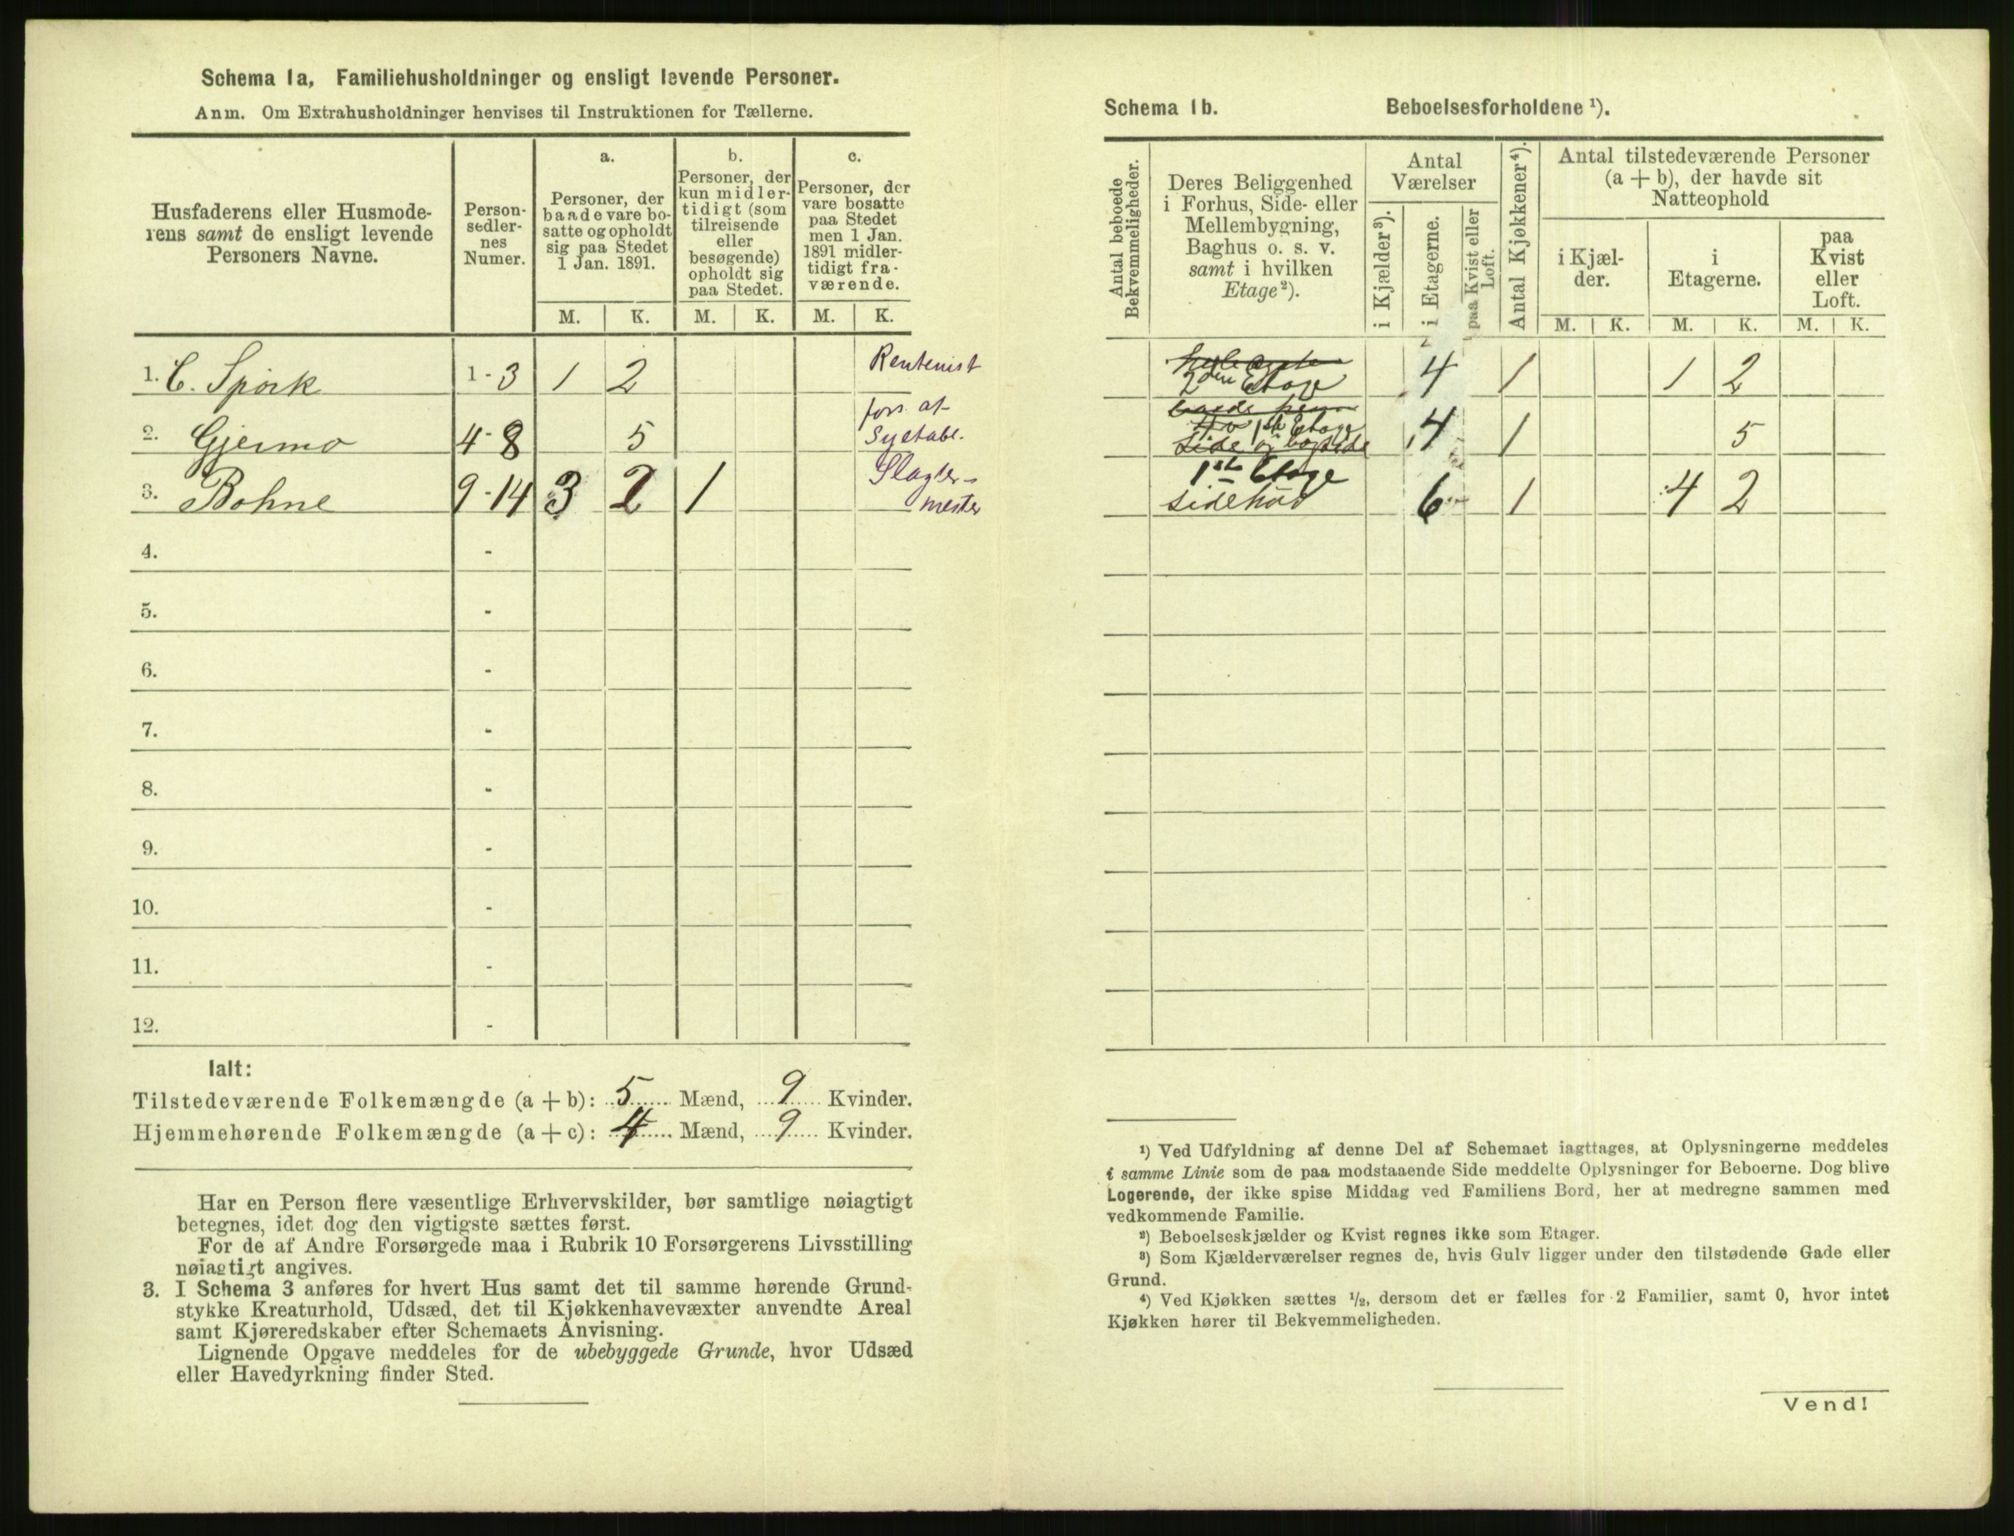 Schema 1a, Familiehusholdninger og ensligt levende Personer.
Anm. Om Extrahusholdninger henvises til Instruktionen for Tællerne.
Husfaderens eller Husmode-
rens samt de ensligt levende
Personers Navne.
Person-
sedler-
nes
Numer.
a.
Personer, der
baade vare bo-
satte og opholdt
sig paa Stedet
1 Jan. 1891.
b.
Personer, der
kun midler-
tidigt (som
tilreisende
eller
besøgende)
opholdt sig
paa Stedet.
c.
Personer, der
vare bosatte
paa Stedet
men 1 Jan.
1891 midler-
tidigt fra-
værende.
M. K. M. K. M. K.
1. C. Spörk 1 - 3 1 2 Rentenist
2. Gjermo 4 - 8 5 fors. af Syetabl.
3. Bohne 9 - 14 3 2 1 Slagter-
mester
4. -
5. -
6. -
7. -
8. -
9. -
10. -
11. -
12. -
Ialt:
Tilstedeværende Folkemængde (a + b): 5 Mænd, 9 Kvinder.
Hjemmehørende Folkemængde (a + c): 4 Mænd, 9 Kvinder.
Har en Person flere væsentlige Erhvervskilder, bør samtlige nøiagtigt
betegnes, idet dog den vigtigste sættes først.
For de af Andre Forsørgede maa i Rubrik 10 Forsørgerens Livsstilling
nøiagtigt angives.
3. I Schema 3 anføres for hvert Hus samt det til samme hørende Grund-
stykke Kreaturhold, Udsæd, det til Kjøkkenhavevæxter anvendte Areal
samt Kjøreredskaber efter Schemaets Anvisning.
Lignende Opgave meddeles for de ubebyggede Grunde, hvor Udsæd
eller Havedyrkning finder Sted.
Schema 1b. Beboelsesforholdene ¹).
Antal beboede
Bekvemmeligheder.
Deres Beliggenhed
i Forhus, Side- eller
Mellembygning,
Baghus o. s. v.
samt i hvilken
Etage²).
Antal
Værelser
i Kjælder³).
i Etagerne.
paa Kvist eller
Loft.
Antal Kjøkkener⁴).
Antal tilstedeværende Personer
(a + b), der havde sit
Natteophold
i Kjæl-
der.
i
Etagerne.
paa
Kvist
eller
Loft.
M. K. M. K. M. K.
2den Etage 4 1 1 2
1ste Etage
Side og bagside 4 1 5
1ste Etage
sidehus 6 1 4 2
¹) Ved Udfyldning af denne Del af Schemaet iagttages, at Oplysningerne meddeles
i samme Linie som de paa modstaaende Side meddelte Oplysninger for Beboerne. Dog blive
Logerende, der ikke spise Middag ved Familiens Bord, her at medregne sammen med
vedkommende Familie.
²) Beboelseskjælder og Kvist regnes ikke som Etager.
³) Som Kjælderværelser regnes de, hvis Gulv ligger under den tilstødende Gade eller
Grund.
⁴) Ved Kjøkken sættes ½, dersom det er fælles for 2 Familier, samt 0, hvor intet
Kjøkken hører til Bekvemmeligheden.
Vend!